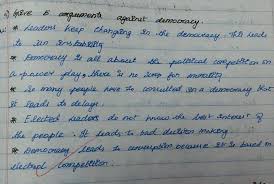 Give 5 arguments against democracy.
* Leaders keep changing in the democracy. This leads
to an instability
* Democracy is all about the political competition on
a power play, there is no scop for morality
* So many people have to consulted in a democracy that
it leads to delays.
* Elected leaders do not know the best interest of
the people. It leads to bad decision making
* Democracy leads to corruption because it is based on
electoral competition.